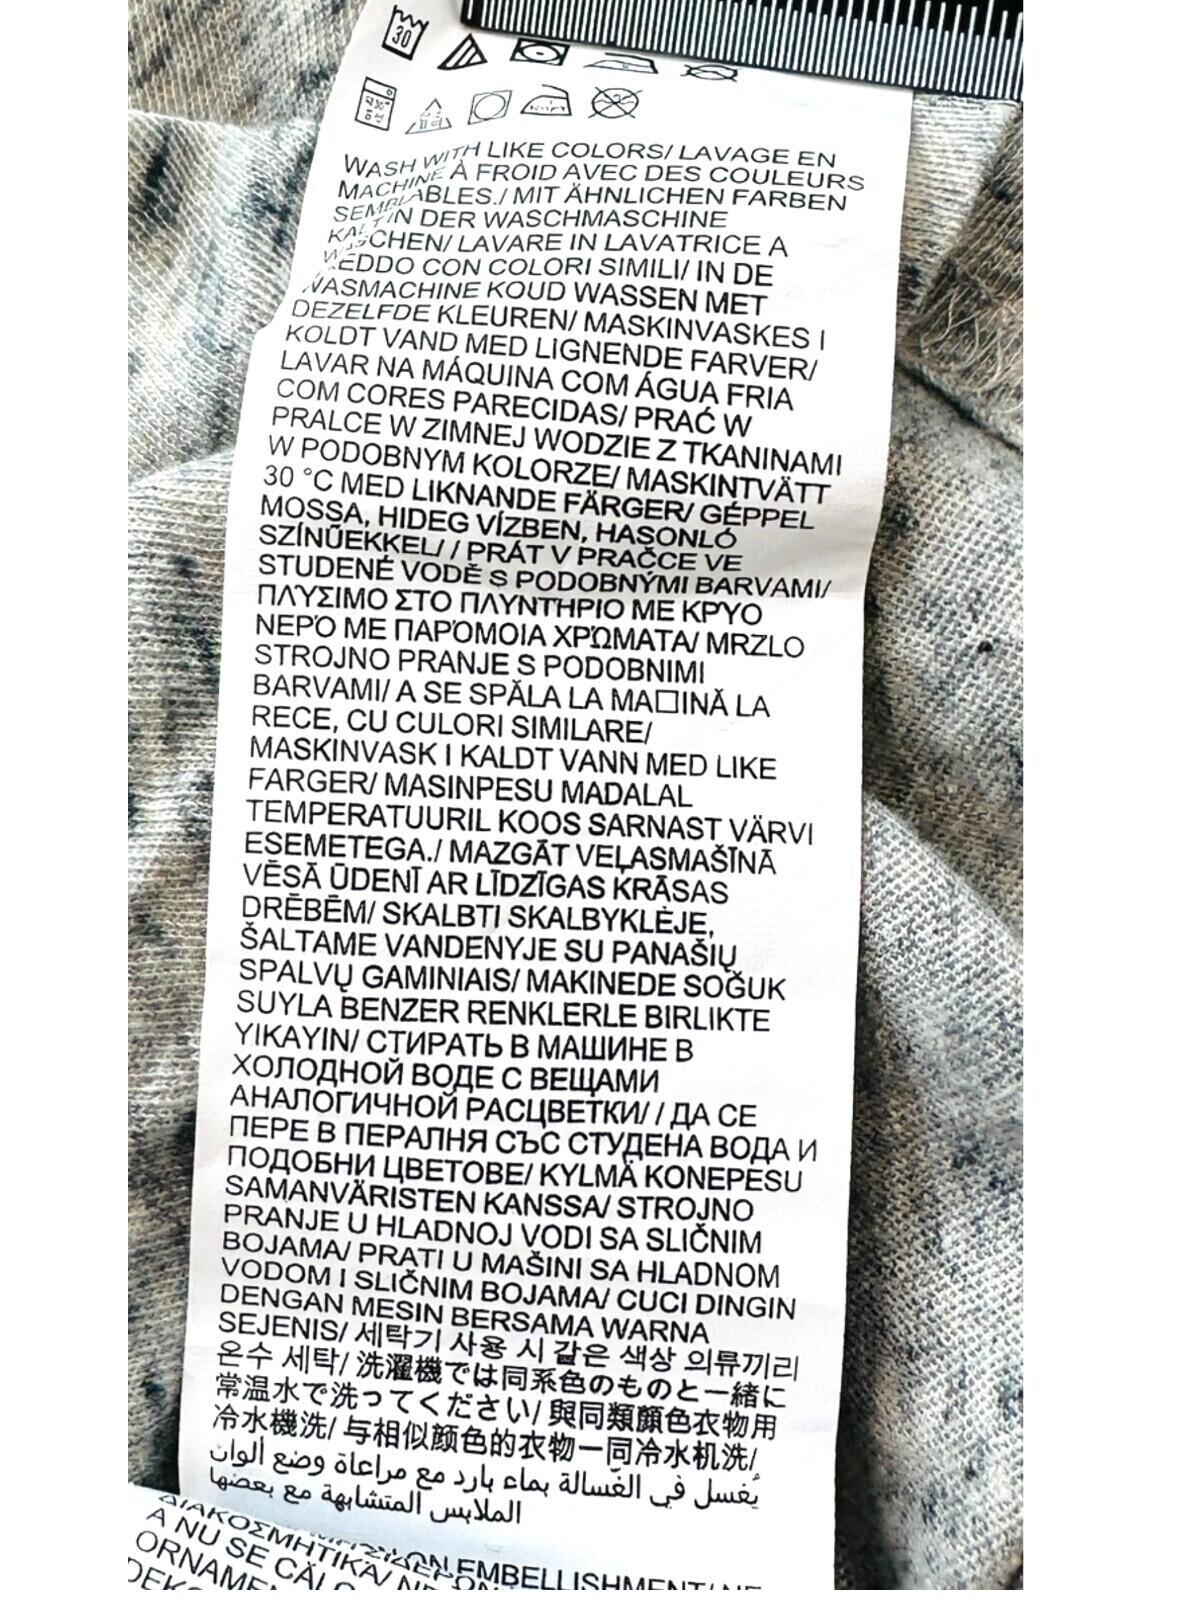 30
WASH WITH LIKE COLORS/ LAVAGE EN
MACHINE À FROID AVEC DES COULEURS
SEMBLABLES./ MIT ÄHNLICHEN FARBEN
KALT IN DER WASCHMASCHINE
WASCHEN/ LAVARE IN LAVATRICE A
FREDDO CON COLORI SIMILI/ IN DE
WASMACHINE KOUD WASSEN MET
DEZELFDE KLEUREN/ MASKINVASKES I
KOLDT VAND MED LIGNENDE FARVER/
LAVAR NA MÁQUINA COM ÁGUA FRIA
COM CORES PARECIDAS/ PRAĆ W
PRALCE W ZIMNEJ WODZIE Z TKANINAMI
W PODOBNYM KOLORZE/ MASKINTVÄTT
30 °C MED LIKNANDE FÄRGER/ GÉPPEL
MOSSA, HIDEG VÍZBEN, HASONLÓ
SZÍNŰEKKEL/ / PRÁT V PRAČCE VE
STUDENÉ VODĚ S PODOBNÝMI BARVAMI/
ΠΛΥΣΙΜΟ ΣΤΟ ΠΛΥΝΤΗΡΙΟ ΜΕ ΚΡΎΟ
ΝΕΡΌ ΜΕ ΠΑΡΌΜΟΙΑ ΧΡΏΜΑΤΑ/ MRZLO
STROJNO PRANJE S PODOBNIMI
BARVAMI/ A SE SPĂLA LA MA□INĂ LA
RECE, CU CULORI SIMILARE/
MASKINVASK I KALDT VANN MED LIKE
FARGER/ MASINPESU MADALAL
TEMPERATUURIL KOOS SARNAST VÄRVI
ESEMETEGA./ MAZGĀT VEĻASMAŠĪNĀ
VĒSĀ ŪDENĪ AR LĪDZĪGAS KRĀSAS
DRĒBĒM/ SKALBTI SKALBYKLĖJE,
ŠALTAME VANDENYJE SU PANAŠIŲ
SPALVŲ GAMINIAIS/ MAKINEDE SOĞUK
SUYLA BENZER RENKLERLE BIRLIKTE
YIKAYIN/ СТИРАТЬ В МАШИНЕ В
ХОЛОДНОЙ ВОДЕ С ВЕЩАМИ
АНАЛОГИЧНОЙ РАСЦВЕТКИ/ / ДА СЕ
ПЕРЕ В ПЕРАЛНЯ СЪС СТУДЕНА ВОДА И
ПОДОБНИ ЦВЕТОВЕ/ KYLMÄ KONEPESU
SAMANVÄRISTEN KANSSA/ STROJNO
PRANJE U HLADNOJ VODI SA SLIČNIM
BOJAMA/ PRATI U MAŠINI SA HLADNOM
VODOM I SLIČNIM BOJAMA/ CUCI DINGIN
DENGAN MESIN BERSAMA WARNA
SEJENIS/ 세탁기 사용 시 같은 색상 의류끼리
온수 세탁/ 洗濯機では同系色のものと一緒に
常温水で洗ってください/ 與同類顏色衣物用
冷水機洗/ 与相似颜色的衣物一同冷水机洗/
يُغسل في الغسالة بماء بارد مع مراعاة وضع ألوان
الملابس المتشابهة مع بعضها
ΔΙΑΚΟΣΜΗΤΙΚΑ/
EMBELLISHMENT/
A NU SE